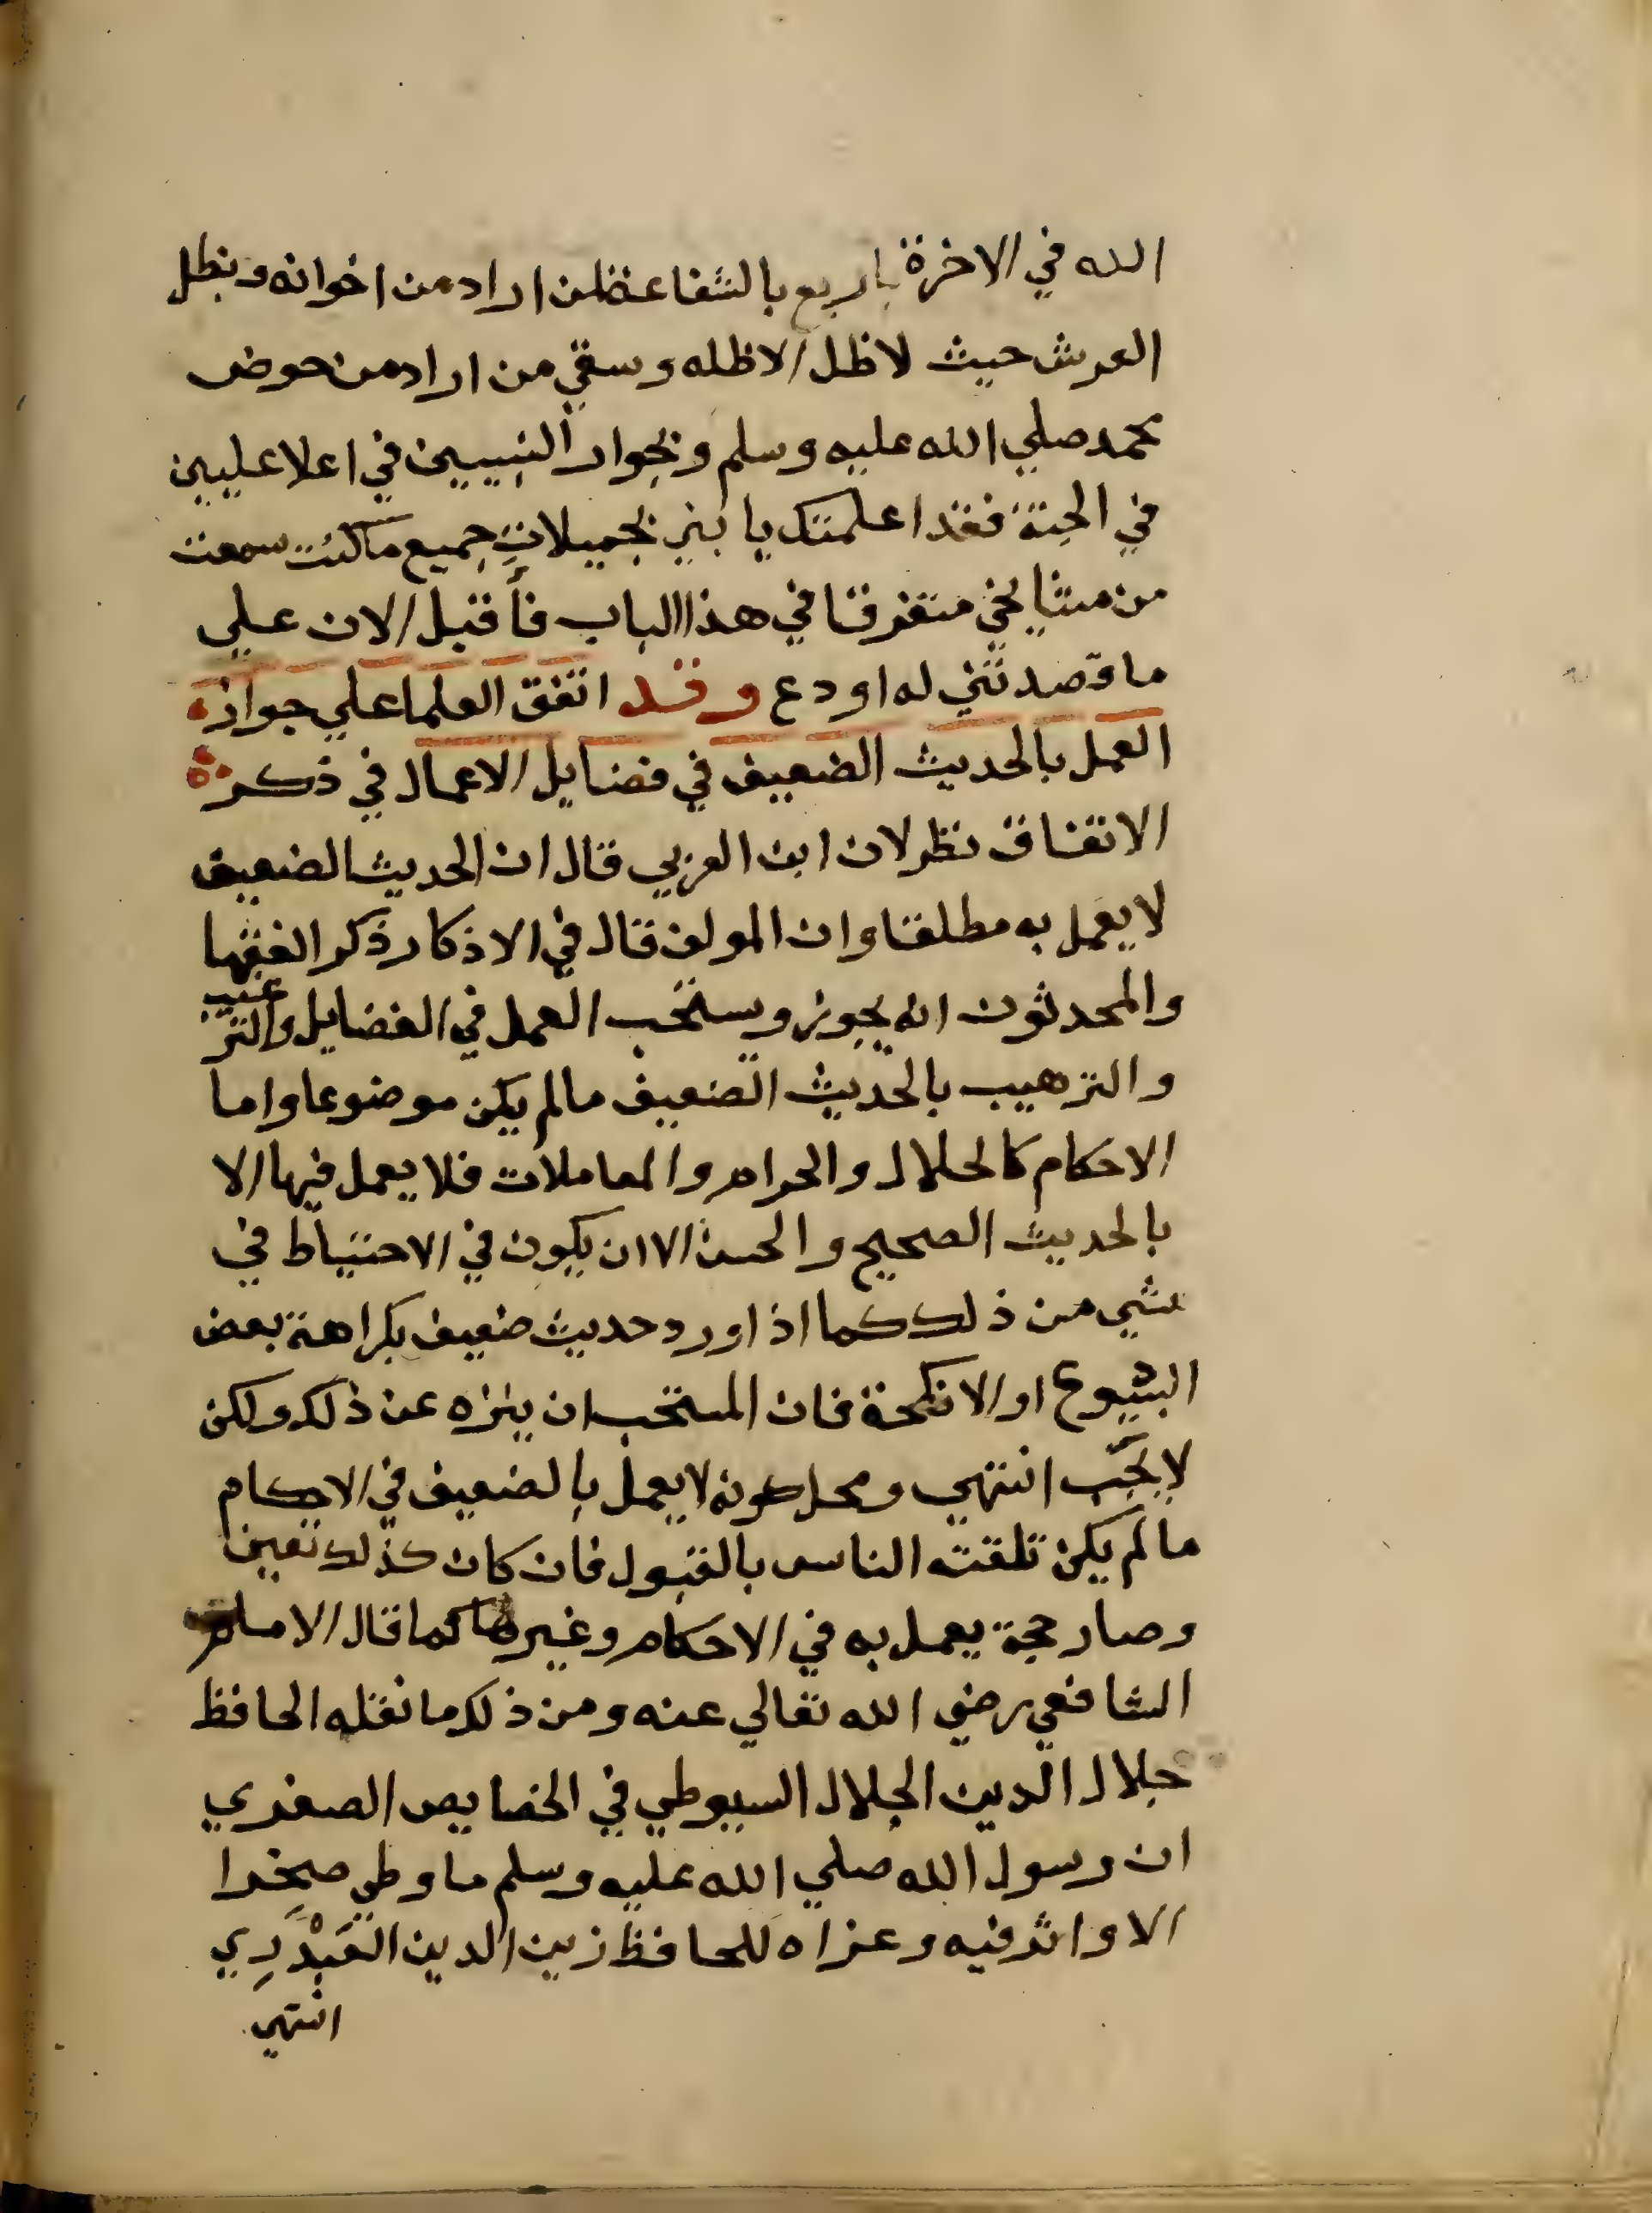 الله في الاخرة باربع بالشفاعة لمن اراد من اخوانه وبظل
العرش حيث لاظل الاظله وسقي من اراد من حوض
محمد صلي الله عليه وسلم وبجوار النبيين في اعلا عليين
في الجنة فقد اعلمتك يا بني بجميلات جميع ما كنت سمعت
من مشايخي متفرقا في هذا الباب فأقبل الان علي
ما قصدتني له او دع وقد اتفق العلما علي جواز
العمل بالحديث الضعيف في فضايل الاعمال في ذكره
الاتفاق نظر لان ابن العربي قال ان الحديث الضعيف
لا يعمل به مطلقا وان المولف قال في الاذكار ذكر الفقها
والمحدثون انه يجوز ويستحب العمل في الفضايل والترغيب
والترهيب بالحديث الضعيف مالم يكن موضوعا واما
الاحكام كالحلال والحرام والمعاملات فلا يعمل فيها الا
بالحديث الصحيح والحسن الا ان يكون في الاحتياط في
شي من ذلك كما اذا ورد حديث ضعيف بكراهة بعض
البيوع او الانكحة فان المستحب ان يتنزه عن ذلك ولكن
لا يجب انتهي ومحل كونه لا يعمل بالضعيف في الاحكام
مالم يكن تلقته الناس بالقبول فان كان كذلك تعين
وصار حجة يعمل به في الاحكام وغيرها كما قال الامام
الشافعي رضي الله تعالي عنه ومن ذلك ما نقله الحافظ
جلال الدين الجلال السيوطي في الخصايص الصغري
ان رسول الله صلي الله عليه وسلم ما وطي صخرا
الا واثر فيه وعزاه للحافظ زين الدين العَبْدَرِي
انتهي